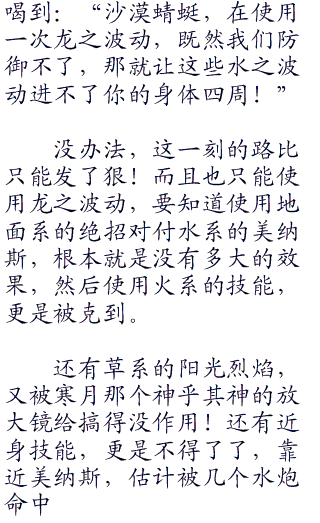 喝到：“沙漠蜻蜓，在使用
一次龙之波动，既然我们防
御不了，那就让这些水之波
动进不了你的身体四周！”
没办法，这一刻的路比
只能发了狠！而且也只能使
用龙之波动，要知道使用地
面系的绝招对付水系的美纳
斯，根本就是没有多大的效
果，然后使用火系的技能，
更是被克到。
还有草系的阳光烈焰，
又被寒月那个神乎其神的放
大镜给搞得没作用！还有近
身技能，更是不得了了，靠
近美纳斯，估计被几个水炮
命中